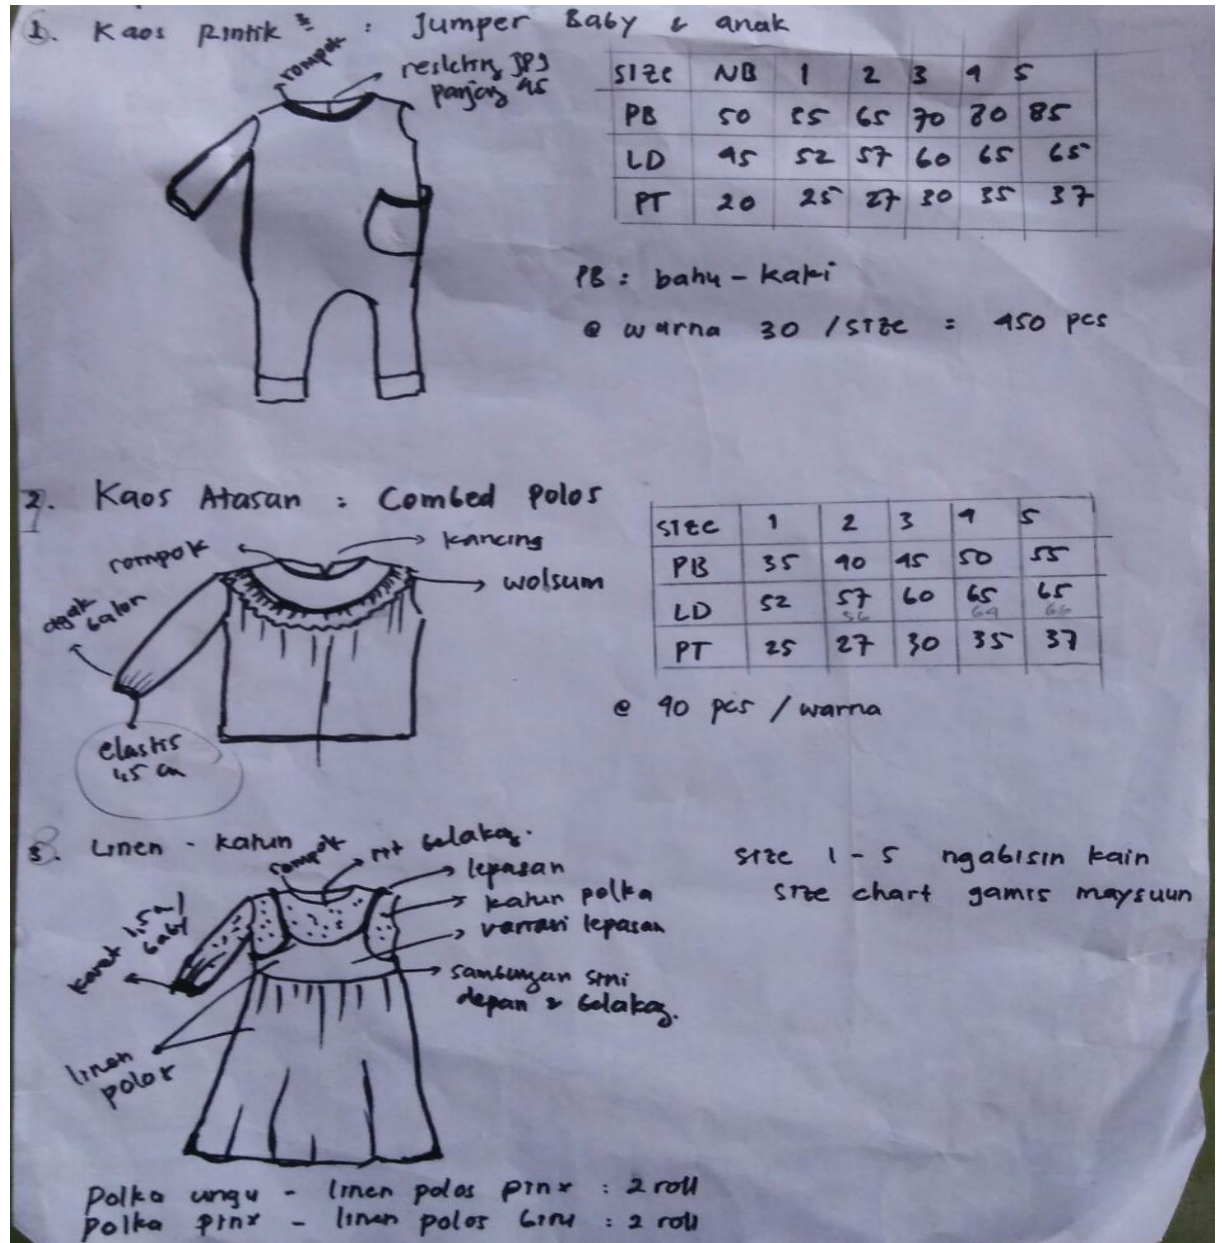 1. Kaos Rintik" : Jumper Baby & anak
rompok
resleting JPJ
panjang 45
SIZE NB 1 2 3 4 5
PB 50 55 65 70 80 85
LD 45 52 57 60 65 65
PT 20 25 27 30 35 37
PB : bahu - kaki
@ warna 30 / SIZE = 450 pcs
2. Kaos Atasan : Combed Polos
rompok
kancing
wolsum
agak
balon
elastis
SIZE 1 2 3 4 5
PB 35 40 45 50 55
LD 52 57 60 65 65
56 64 66
PT 25 27 30 35 37
@ 40 pcs / warna
3. Linen - katun
rompok
rit belakang.
lepasan
katun polka
variasi lepasan
sambungan sini
depan & belakang.
karet 1,5 a/
baby
linen
polos
size 1 - 5 ngabisin kain
size chart gamis maysuun
Polka ungu - linen polos pinx : 2 roll
Polka pinx - linen polos biru : 2 roll